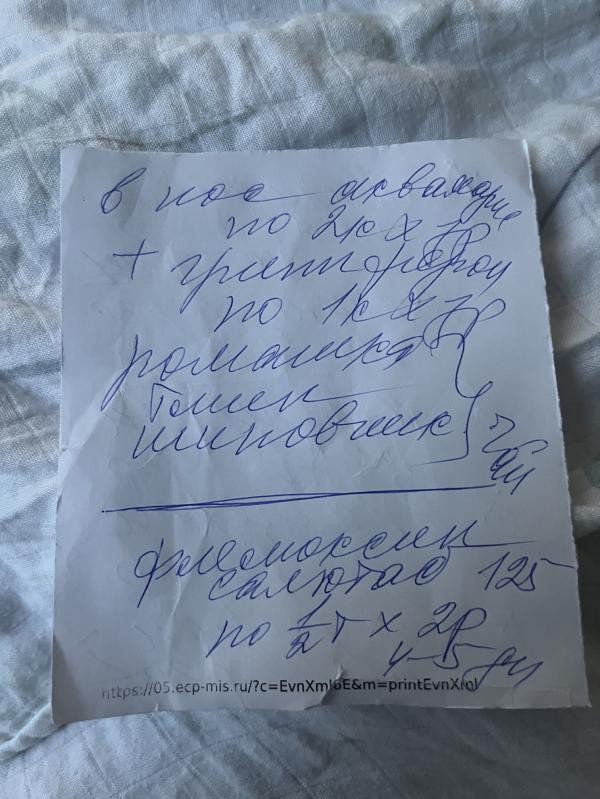 в нос аквамарис
по 2к х 7р
+ гриппферон
по 1к х 7р
ромашка
тмин
шиповник
чай
флемоксин
салютаб 125
по 1/2 т х 2р
4-5 дн
https://05.ecp-mis.ru/?c=EvnXml6E&m=printEvnXml